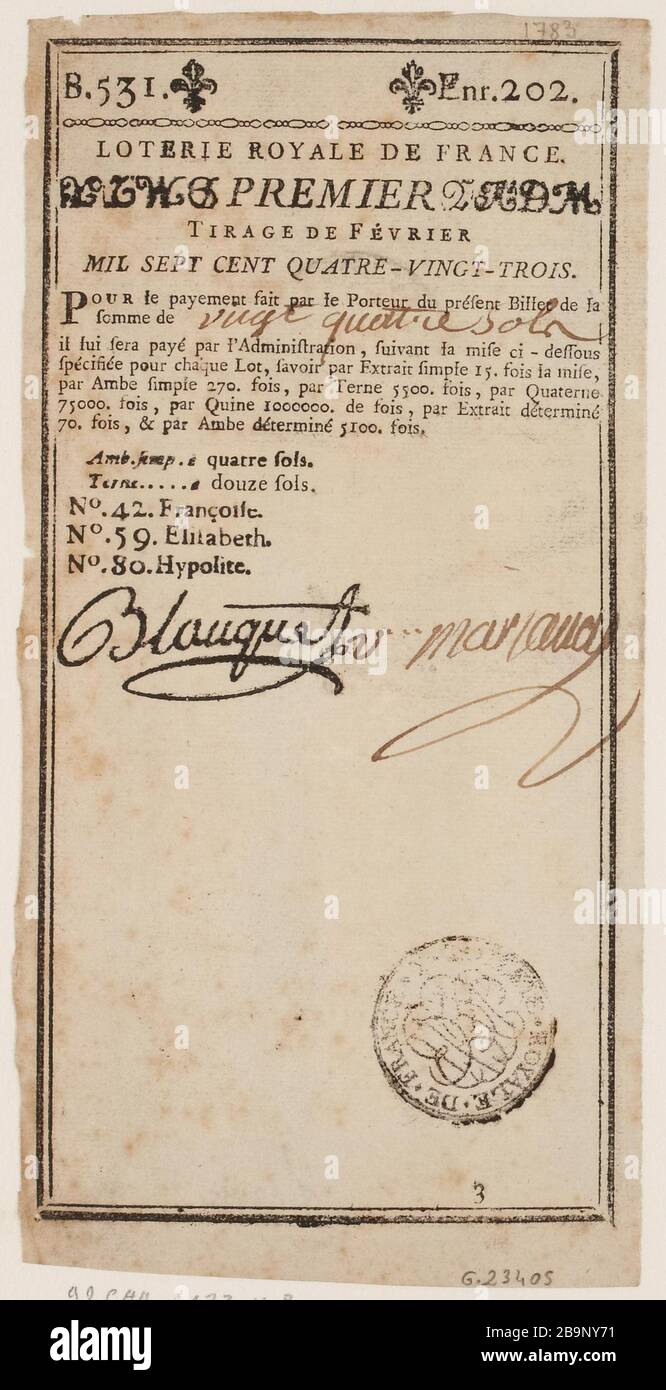 1783
B.531. Enr.202.
LOTERIE ROYALE DE FRANCE.
PREMIER
TIRAGE DE FÉVRIER
MIL SEPT CENT QUATRE-VINGT-TROIS.
POUR le payement fait par le Porteur du préſent Billet de la
ſomme de vingt quattre sols
il lui ſera payé par l'Adminiſtration, ſuivant la miſe ci-deſſous
ſpécifiée pour chaque Lot, ſavoir par Extrait ſimple 15. fois la miſe,
par Ambe ſimple 270. fois, par Terne 5500. fois, par Quaterne
75000. fois, par Quine 1000000. de fois, par Extrait déterminé
70. fois, & par Ambe déterminé 5100. fois.
Amb.ſimp.e quatre ſols.
Terne.....e douze ſols.
No.42. Françoiſe.
No.59. Eliſabeth.
No.80. Hypolite.
Blouquet
ROYALE DE FRANCE
3
G.23405
alamy
Image ID: 2B9NY71
www.alamy.com